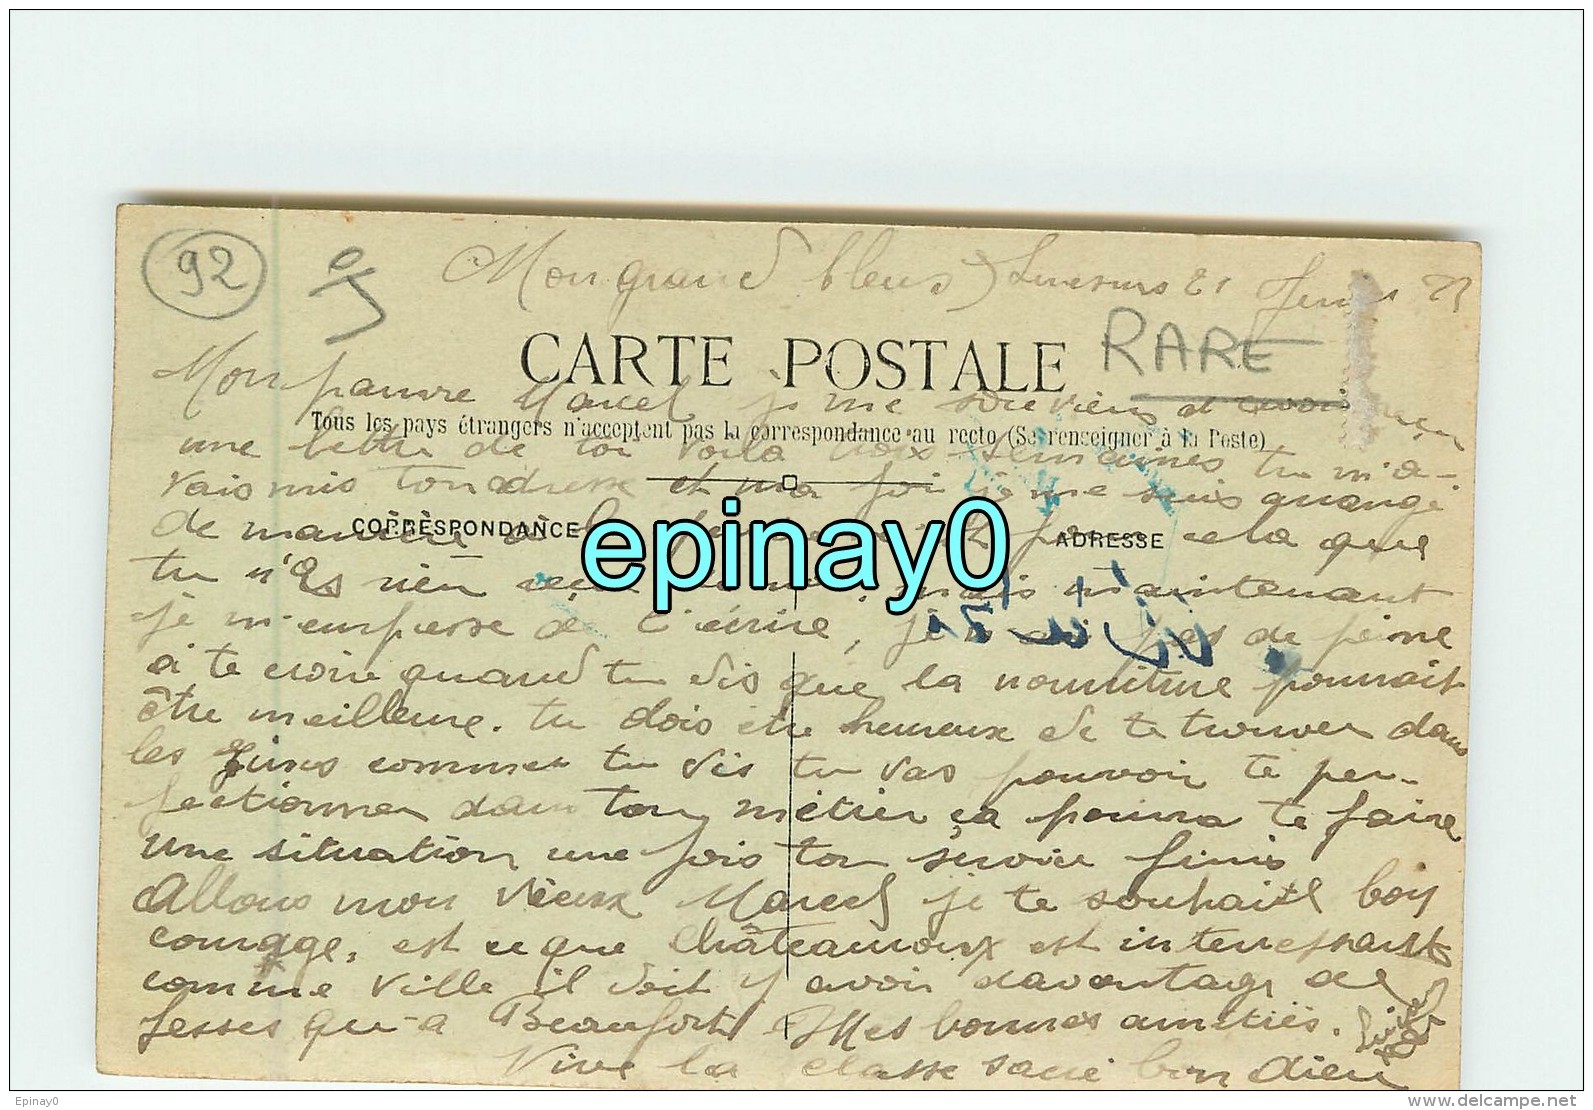 92
Mon grand bleus
RARE
CARTE POSTALE
Mon pauvre Marcel, je me souviens d'avoir reçu
Tous les pays étrangers n'acceptent pas la correspondance au recto (Se renseigner à la Poste)
une lettre de toi voilà trois semaines tu m'a-
vais mis ton adresse et ma foi je me suis arrangé
CORRESPONDANCE
ADRESSE
de manière à la cela que
epinay0
tu n'as rien reçu mais maintenant
je m'empresse de t'écrire, je n'ai pas de peine
à te croire quand tu dis que la nourriture pourrait
être meilleure. tu dois être heureux de te trouver dans
les comme tu dis tu vas pouvoir te per-
fectionner dans ton métier ça pourra te faire
une situation une fois ton service finis
Allons mon vieux Marcel je te souhaite bon
courage, est ce que Châteauroux est interressant
comme ville il doit y avoir davantage de
fesses qu-a Beaufort. Mes bonnes amitiés.
Vive la classe sacré bon dieu
Epinay0
www.delcampe.net